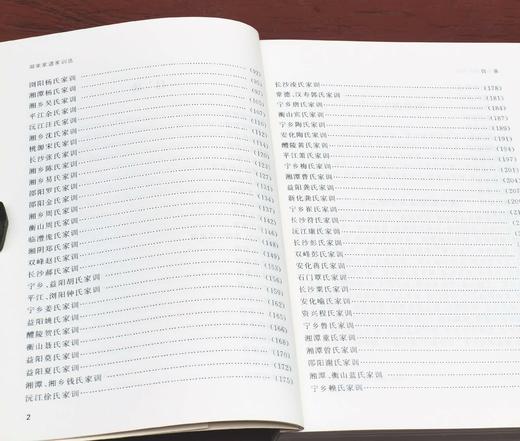 湖湘家谱家训选
浏阳杨氏家训 (92)
湘潭杨氏家训
湘乡吴氏家训
平江余氏家训
沅江汪氏家训
湘乡沈氏家训 (112)
桃源宋氏家训 (114)
长沙张氏家训 (120)
湘乡陈氏家训 (123)
湘乡易氏家训
邵阳罗氏家训
邵阳金氏家训
湘乡周氏家训 (142)
衡山周氏家训 (144)
临澧庞氏家训 (146)
湘阴郑氏家训 (149)
双峰赵氏家训
长沙郝氏家训 (153)
宁乡、益阳胡氏家训
平江、浏阳钟氏家训 (159)
宁乡姜氏家训
益阳姚氏家训 (162)
醴陵贺氏家训 (165)
衡山聂氏家训 (166)
益阳莫氏家训 (168)
益阳夏氏家训 (172)
湘潭、湘乡钱氏家训
沅江徐氏家训 (175)
2
目 录
长沙凌氏家训 (178)
常德、汉寿郭氏家训 (181)
宁乡唐氏家训 (184)
衡山宾氏家训 (187)
宁乡陶氏家训 (189)
安化陶氏家训 (191)
醴陵黄氏家训 (194)
平江萧氏家训 (197)
宁乡梅氏家训 (201)
湘潭曹氏家训 (204
益阳龚氏家训
新化龚氏家训
宁乡崔氏家训
长沙符氏家训
沅江康氏家训
长沙彭氏家训
双峰彭氏家训
安化蒋氏家训
石门覃氏家训
长沙粟氏家训
安化喻氏家训
资兴程氏家训
宁乡鲁氏家训
湘潭童氏家训
湘潭曾氏家训
邵阳谢氏家训
湘潭、衡山蓝氏家训
宁乡赖氏家训